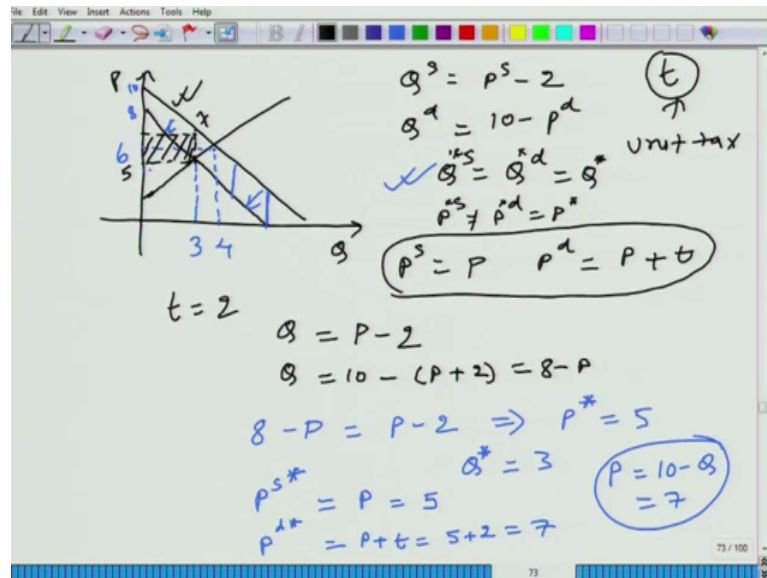 File Edit View Insert Actions Tools Help
B I
P
10
8
x
6
5
3 4
Q
Qˢ = pˢ - 2
Qᵈ = 10 - pᵈ
t
↑
unit tax
Q*ˢ = Q*ᵈ = Q*
p*ˢ ≠ p*ᵈ = p*
pˢ = P pᵈ = P + t
t = 2
Q = P - 2
Q = 10 - (P + 2) = 8 - P
8 - P = P - 2 ⇒ P* = 5
Q* = 3
pˢ* = P = 5
pᵈ* = P + t = 5 + 2 = 7
P = 10 - Q
= 7
73 / 100
73